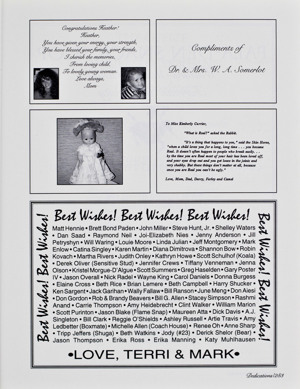 Congratulations Heather!
Heather,
You have given your energy, your strength,
You have blessed your family, your friends,
I cherish the memories,
From loving child,
To lovely young woman.
Love always,
Mom
Compliments of
Dr. & Mrs. W. A. Somerlot
To Miss Kimberly Carrier,
"What is Real?" asked the Rabbit.
"It's a thing that happens to you," said the Skin Horse,
"when a child loves you for a long, long time . . . you become
Real. It doesn't often happen to people who break easily. . .
by the time you are Real most of your hair has been loved off,
and your eyes drop out and you get loose in the joints and
very shabby. But these things don't matter at all, because
once you are Real you can't be ugly."
Love, Mom, Dad, Darcy, Farley and Camel
Best Wishes! Best Wishes! Best Wishes!
Best Wishes! Best Wishes!
Best Wishes! Best Wishes!
Matt Hennie • Brett Bond Paden • John Miller • Steve Hunt, Jr. • Shelley Waters
• Dan Saad • Raymond Neil • Joi-Elizabeth Nies • Jenny Anderson • Jill
Petryshyn • Will Waring • Louie Moore • Linda Julian • Jeff Montgomery • Mark
Enlow • Catina Singley • Karen Martin • Diana Dimitrova • Shannon Bow • Robin
Kovach • Martha Rivers • Judith Onley • Kathryn Howe • Scott Schulhof (Koala)
• Derek Oliver (Sensitive Stud) • Jennifer Crews • Tiffany Venneman • Jenni
Olson • Kristal Morgue-D'Algue • Scott Summers • Greg Haselden • Gary Poster
IV • Jason Overall • Nick Radel • Wayne King • Carol Daniels • Donna Burgess
• Elaine Cross • Beth Rice • Brian Lamere • Beth Campbell • Harry Shucker •
Ken Sargent • Jack Garthan • Wally Fallaw • Bill Ranson • June Meng • Don Aiesi
• Don Gordon • Rob & Brandy Beavers • Bill G. Allen • Stacey Simpson • Rashmi
Anand • Carrie Thompson • Amy Heidebrecht • Clint Walker • William Marion
• Scott Purinton • Jason Blake (Flame Snap) • Maureen Atta • Dick Davis • A.J.
Singleton • Bill Clark • Reggie O'Shields • Ainsley Russell • Artie Travis • Amy
Ledbetter (Boxmate) • Michelle Allen (Coach House) • Renee Oh • Anne Sharp
• Tripp Jeffers (Shuga) • Beth Watkins • Jody (#23) • Derick Shelor (Bear) •
Jason Thompson • Erika Ross • Erika Manning • Katy Muhlhausen
•LOVE, TERRI & MARK•
Dedications/283